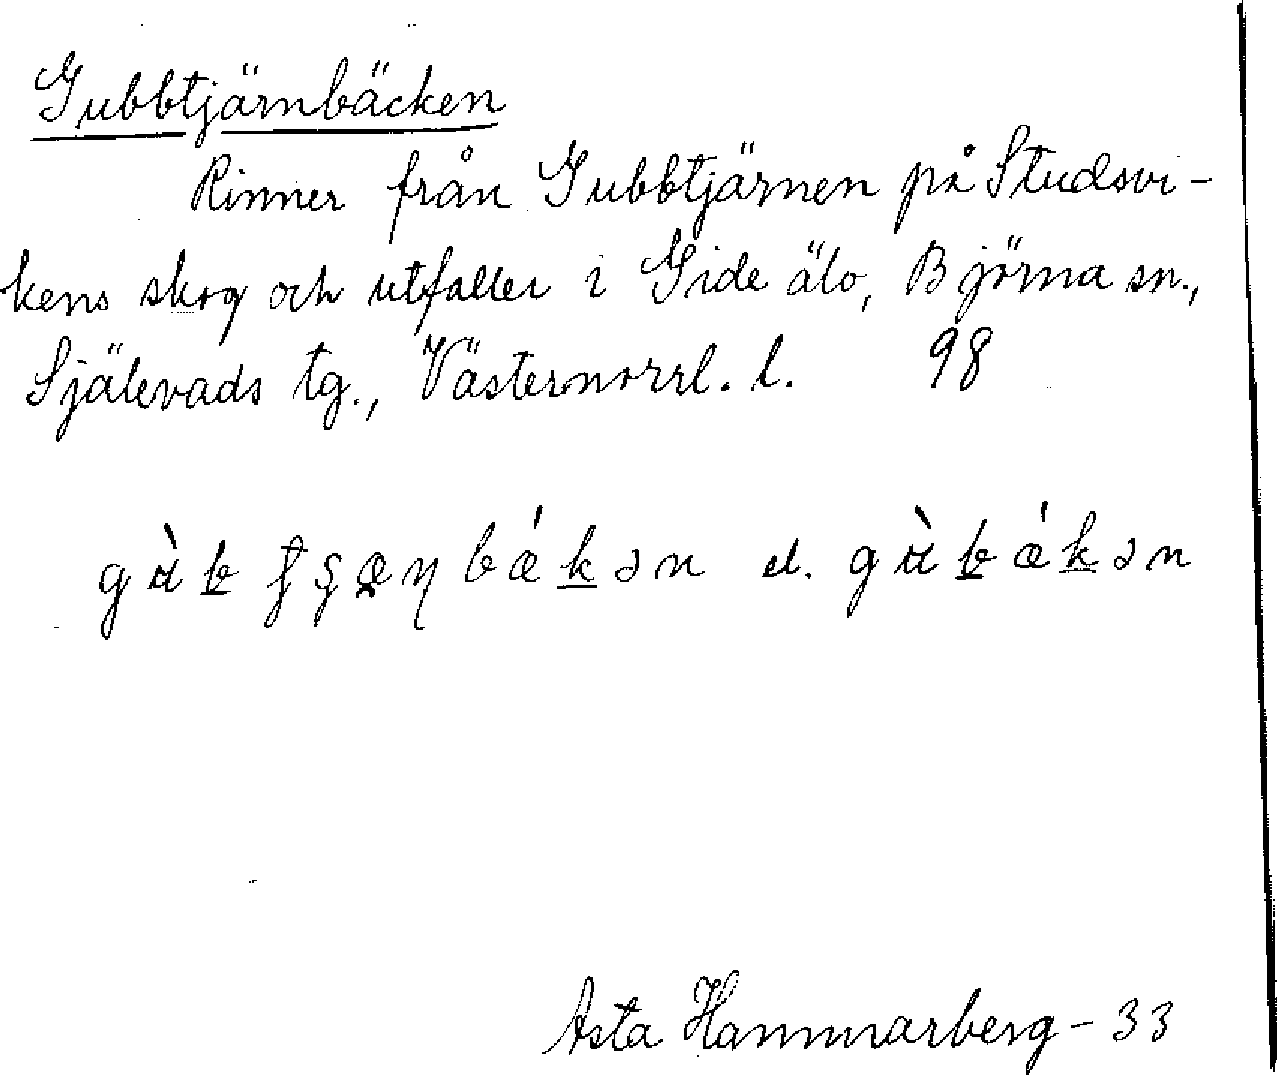 Gubbtjärnbäcken
Rinner från Gubbtjärnen på Studsvi-
kens skog och utfaller i Gide älv, Björna sn.,
Själevads tg., Västernorrl. l. 98
el.
Asta Hammarberg - 33